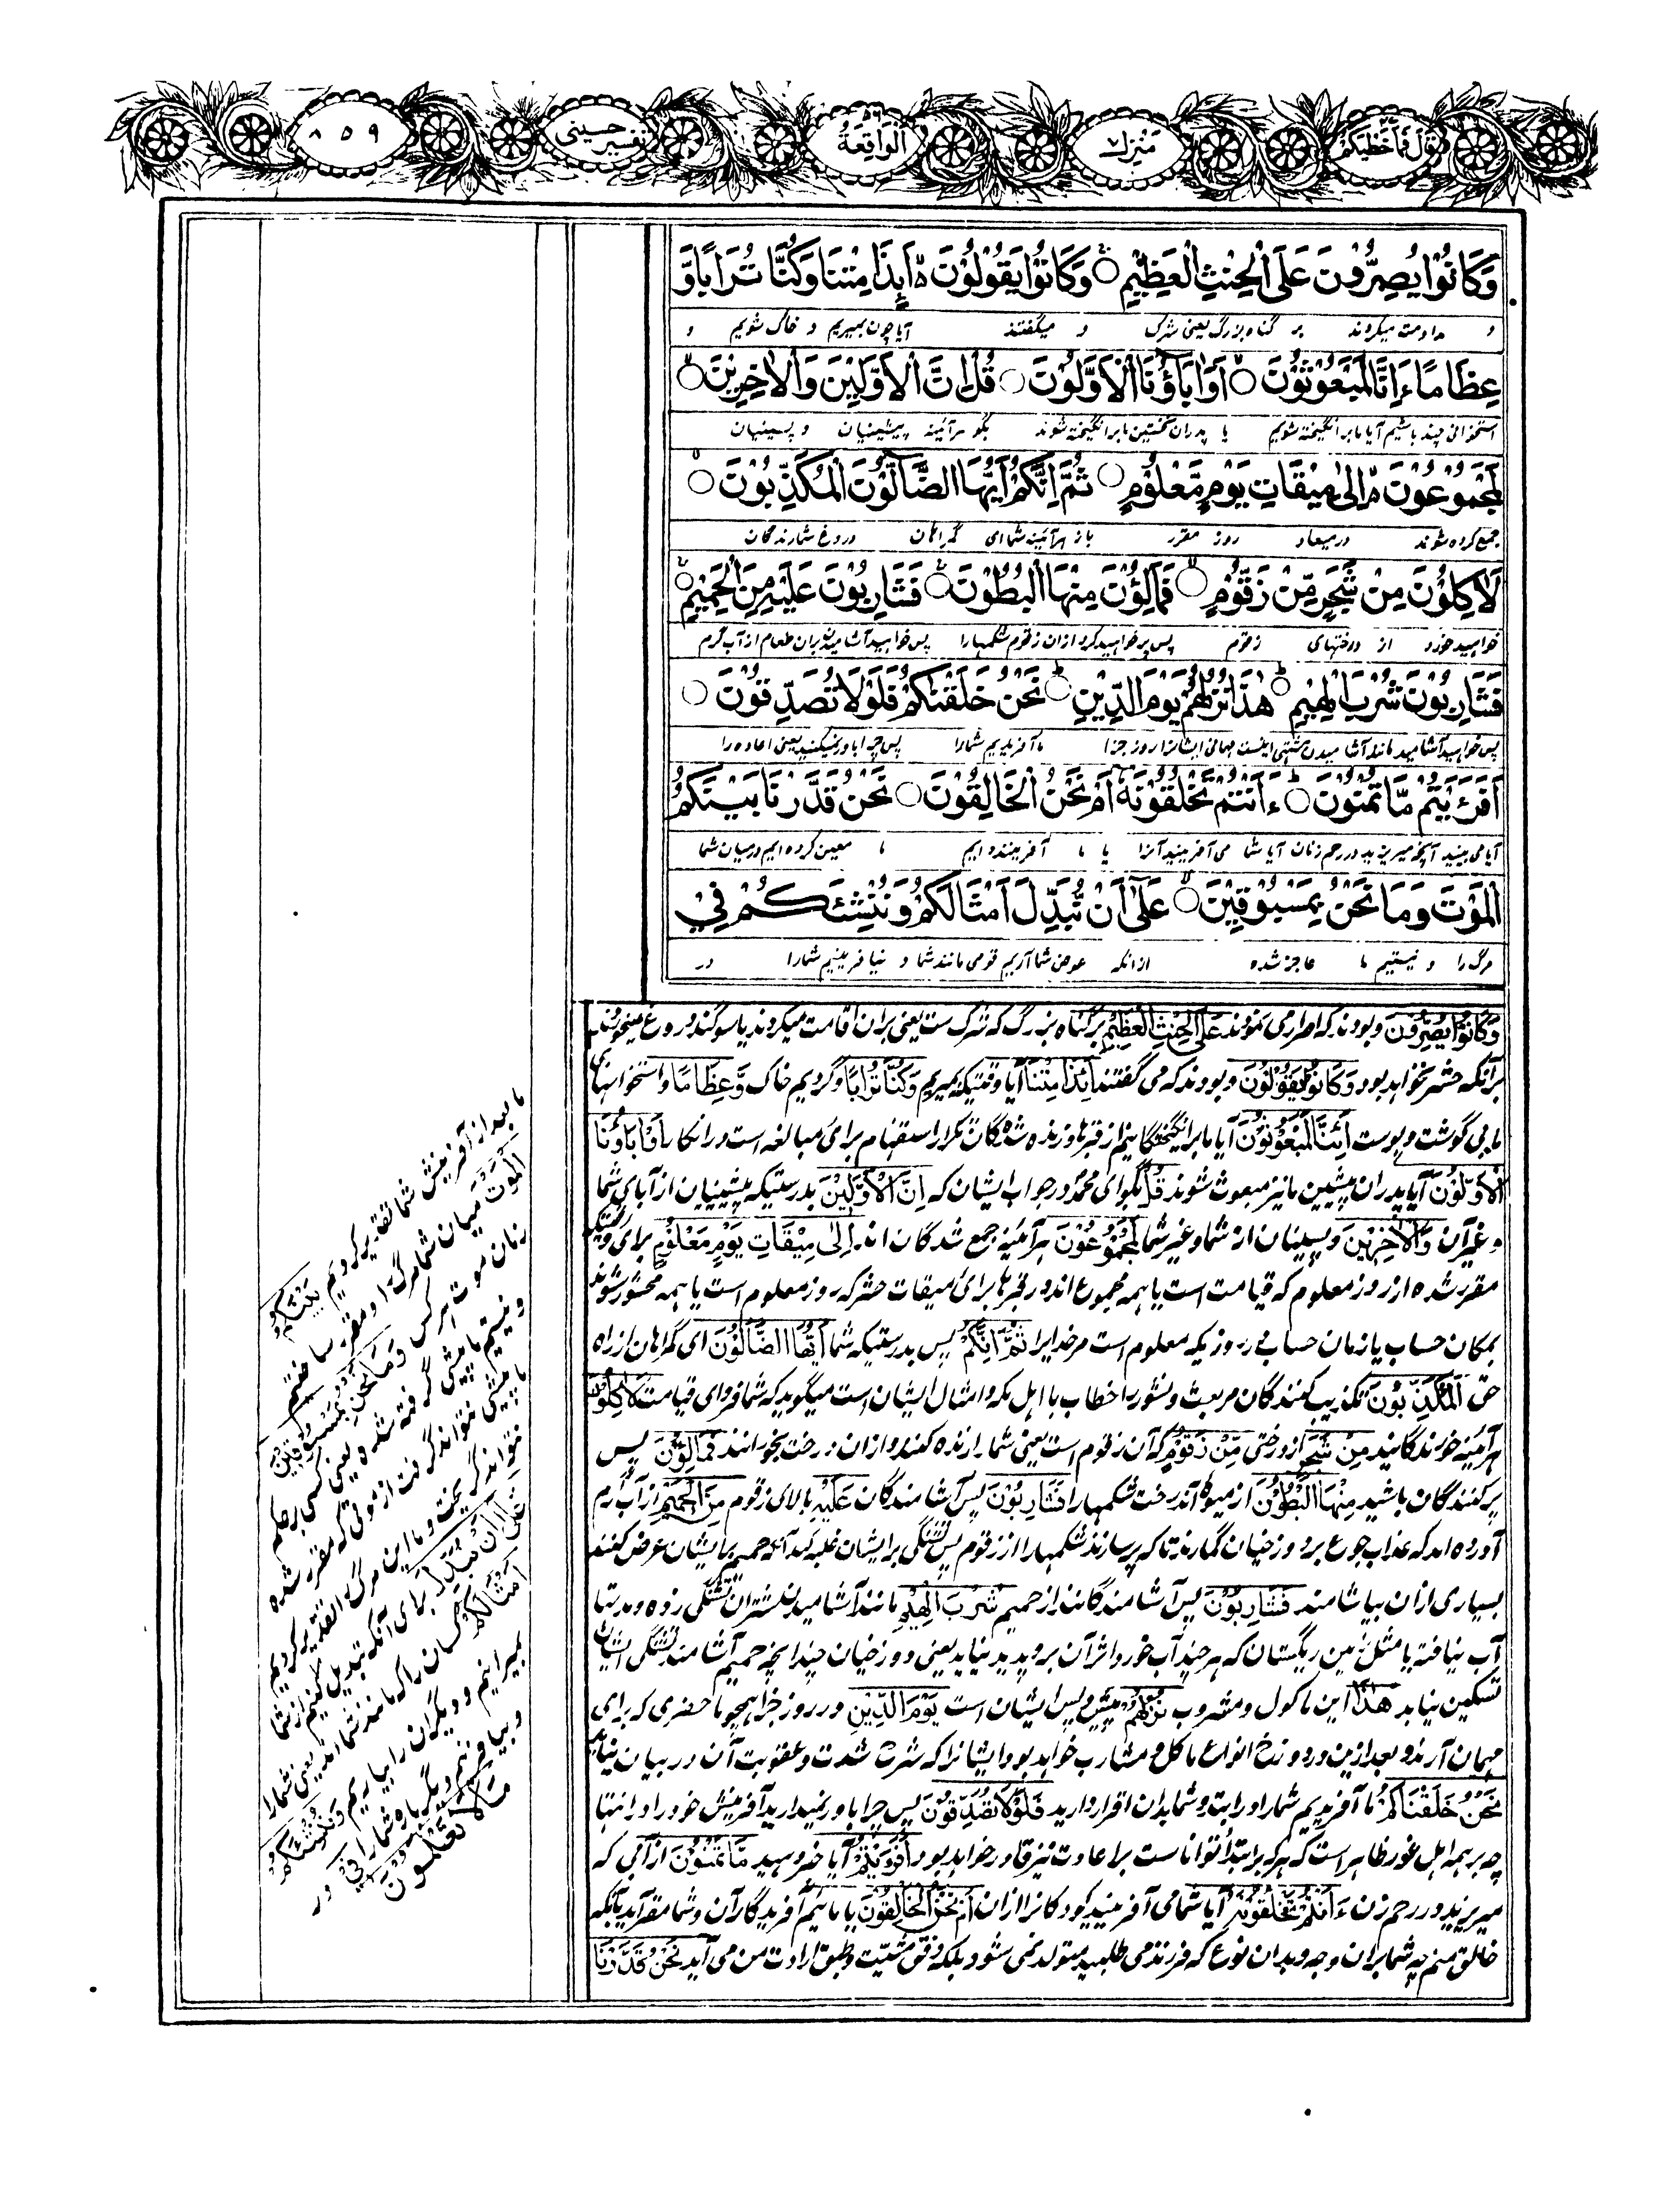 قال فما خطبکم ۲۷
منزل ۷
الواقعة ۵۶
تفسیر حسینی
۸۵۹
وَكَانُوْا يُصِرُّوْنَ عَلَى الْحِنْثِ الْعَظِيْمِ ○ وَكَانُوْا يَقُوْلُوْنَ ەۙ اَىِٕذَا مِتْنَا وَكُنَّا تُرَابًا وَّ
و مداومت میکردند بر گناه بزرگ یعنی شرک و میگفتند آیا چون بمیریم و خاک شویم و
عِظَامًا ءَاِنَّا لَمَبْعُوْثُوْنَ ○ اَوَاٰبَاؤُنَا الْاَوَّلُوْنَ ○ قُلْ اِنَّ الْاَوَّلِيْنَ وَالْاٰخِرِيْنَ ○
استخوانی چند باشیم آیا ما برانگیخته شویم یا پدران نخستین ما برانگیخته شوند بگو هرآئینه پیشینیان و پسینیان
لَمَجْمُوْعُوْنَ ەۙ اِلٰى مِيْقَاتِ يَوْمٍ مَّعْلُوْمٍ ○ ثُمَّ اِنَّكُمْ اَيُّهَا الضَّآلُّوْنَ الْمُكَذِّبُوْنَ ○
جمع کرده شوند در میعاد روز مقرر باز هرآئینه شما ای گمراهان دروغ شمارندگان
لَاٰكِلُوْنَ مِنْ شَجَرٍ مِّنْ زَقُّوْمٍ ○ فَمَالِـُٔوْنَ مِنْهَا الْبُطُوْنَ ○ فَشَارِبُوْنَ عَلَيْهِ مِنَ الْحَمِيْمِ ○
خواهید خورد از درختهای زقوم پس پر خواهید کرد ازان زقوم شکمها را پس خواهید آشامید بران طعام از آب گرم
فَشَارِبُوْنَ شُرْبَ الْهِيْمِ ○ هٰذَا نُزُلُهُمْ يَوْمَ الدِّيْنِ ○ نَحْنُ خَلَقْنٰكُمْ فَلَوْلَا تُصَدِّقُوْنَ ○
پس خواهید آشامید مانند آشامیدن اینست مهمانی ایشان را روز جزا ما آفریدیم شما را پس چرا باور نمیکنید یعنی اعاده را
اَفَرَءَيْتُمْ مَّا تُمْنُوْنَ ○ ءَاَنْتُمْ تَخْلُقُوْنَهٗ اَمْ نَحْنُ الْخَالِقُوْنَ ○ نَحْنُ قَدَّرْنَا بَيْنَكُمُ
آیا می بینید آنچه میریزید در رحم زنان آیا شما می آفرینید آنرا یا ما آفریننده ایم ما معین کرده ایم درمیان شما
الْمَوْتَ وَمَا نَحْنُ بِمَسْبُوْقِيْنَ ○ عَلٰٓى اَنْ نُّبَدِّلَ اَمْثَالَكُمْ وَنُنْشِئَكُمْ فِيْ
مرگ را و نیستیم ما عاجز شده ازانکه عوض شما آریم قومی مانند شما و بیافرینیم شما را در
وَكَانُوْا يُصِرُّوْنَ و بودند که اصرار می نمودند عَلَى الْحِنْثِ الْعَظِيْمِ بر گناه بزرگ که شرک ست یعنی بران اقامت میکردند یا سوگند دروغ میخوردند
برآنکه حشر نخواهد بود وَكَانُوْا يَقُوْلُوْنَ و بودند که می گفتند اَئِذَا مِتْنَا آیا وقتیکه بمیریم وَكُنَّا تُرَابًا و گردیم خاک وَّعِظَامًا و استخوانهای
بی گوشت و پوست اَئِنَّا لَمَبْعُوْثُوْنَ آیا ما برانگیختگانیم از قبرها و زنده شدگان تکرار استفهام برای مبالغه است در انکار اَوَاٰبَاؤُنَا
الْاَوَّلُوْنَ آیا پدران پیشین ما نیز مبعوث شوند قُلْ بگو ای محمد در جواب ایشان که اِنَّ الْاَوَّلِيْنَ بدرستیکه پیشینیان از آبای شما
و غیر آن وَالْاٰخِرِيْنَ و پسینیان از شما و غیر شما لَمَجْمُوْعُوْنَ هرآئینه جمع شدگان اند اِلٰى مِيْقَاتِ يَوْمٍ مَعْلُوْمٍ برای وقتیکه
مقرر شده از روز معلوم که قیامت است یا همه مجموع اند در قبرها برای میقات حشر که روز معلوم است یا همه محشور شوند
بمکان حساب یا زمان حساب در روزیکه معلوم است مر خدایرا ثُمَّ اِنَّكُمْ پس بدرستیکه شما اَيُّهَا الضَّالُّوْنَ ای گمراهان از راه
حق الْمُكَذِّبُوْنَ تکذیب کنندگان مر بعث و نشور را خطاب با اهل مکه و امثال ایشان است میگوید که شما فردای قیامت لَاٰكِلُوْنَ
هرآئینه خورندگانید مِنْ شَجَرٍ از درختی مِّنْ زَقُّوْمٍ که آن زقوم است یعنی شما را زنده کنند و ازان درخت بخورانند فَمَالِؤُنَ پس
پر کنندگان باشید مِنْهَا الْبُطُوْنَ از میوهٔ آن درخت شکمها را فَشَارِبُوْنَ پس آشامندگان عَلَيْهِ بالای زقوم مِنَ الْحَمِيْمِ از آب گرم
آورده اند که عذاب جوع بر دوزخیان گمارند تا که پر سازند شکمها را از زقوم پس تشنگی برایشان غلبه کند آنگه حمیم برایشان عرض کنند
بسیاری ازان بیاشامند فَشَارِبُوْنَ پس آشامندگانند از حمیم شُرْبَ الْهِيْمِ مانند آشامیدن شتران تشنگی زده و مدتها
آب نیافته یا مثل زمین ریگستان که هر چند آب خورد اثر آن برو پدید نیاید یعنی دوزخیان چندانچه حمیم آشامند تشنگی ایشان
تسکین نیابد هٰذَا این ماکول و مشروب نُزُلُهُمْ پیش ایشان است يَوْمَ الدِّيْنِ در روز جزا همچو ماحضری که برای
مهمان آرند و بعد ازین در دوزخ انواع ماکل و مشارب خواهد بود ایشانرا که شرح شدت و عقوبت آن در بیان نیاید
نَحْنُ خَلَقْنَاكُمْ ما آفریدیم شما را در ابتدا و شما بدان اقرار دارید فَلَوْلَا تُصَدِّقُوْنَ پس چرا باور نمیدارید آفرینش خود را در انتها
چه بر همه اهل غور ظاهر است که هر که بر ابتدا توانا ست بر اعادت نیز قادر خواهد بود اَفَرَءَيْتُمْ آیا خبر دهید مَّا تُمْنُوْنَ از آبی که
میریزید در رحم زن ءَاَنْتُمْ تَخْلُقُوْنَهٗ آیا شما می آفرینید کودکان را ازان اَمْ نَحْنُ الْخَالِقُوْنَ یا مائیم آفریدگار آن و شما مقر آید بآنکه
خالق منم چه شما بران وجه و بدان نوع که فرزند می طلبید متولد نمی شود بلکه وفق مشیت و طبق ارادت من می آید نَحْنُ قَدَّرْنَا
ما بعد از آفرینش شما تقدیر کردیم بَيْنَكُمُ
الْمَوْتَ میان شما مرگ را و مقرر ساختیم
زمان موت هر کس وَمَا نَحْنُ بِمَسْبُوْقِيْنَ
و نیستیم ما پیشی گرفته شده یعنی کسی بر حکم
ما پیشی نتواند گرفت از موتی که مقرر شده
نتواند گریخت و ما این مرگ را تقدیر کردیم
عَلٰى اَنْ نُّبَدِّلَ برای آنکه تبدیل کنیم از شما
اَمْثَالَكُمْ کسان را که مانند شما اند یعنی شما را
بمیرانیم و دیگران را بیاریم وَنُنْشِئَكُمْ
و بیافرینیم دیگر باره شما را فِيْ در
مَا لَا تَعْلَمُوْنَ